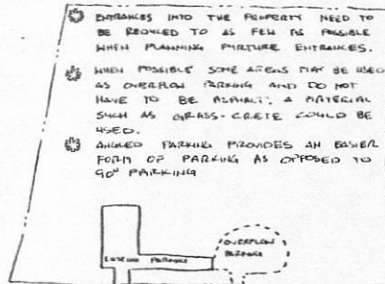 ENTRANCES INTO THE PROPERTY NEED TO
BE REDUCED TO AS FEW AS POSSIBLE
WHEN PLANNING FURTURE ENTRANCES.
WHEN POSSIBLE SOME AREAS MAY BE USED
AS OVERFLOW PARKING AND DO NOT
HAVE TO BE ASPHALT. A MATERIAL
SUCH AS GRASS-CRETE COULD BE
USED.
ANGLED PARKING PROVIDES AN EASIER
FORM OF PARKING AS OPPOSED TO
90° PARKING
OVERFLOW
PARKING
PARKING